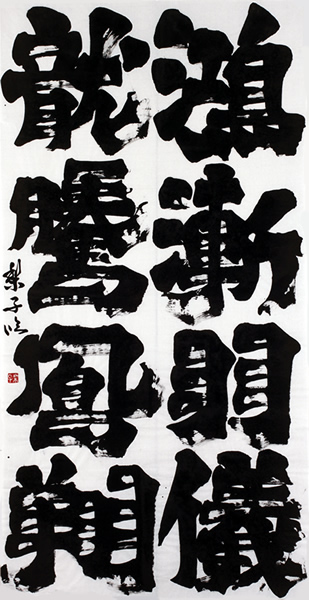 鴻漸羽儀
龍騰鳳翔
梨子臨